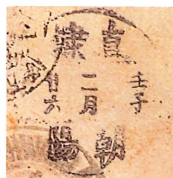 直隸
壬子
二月
十六
朝陽